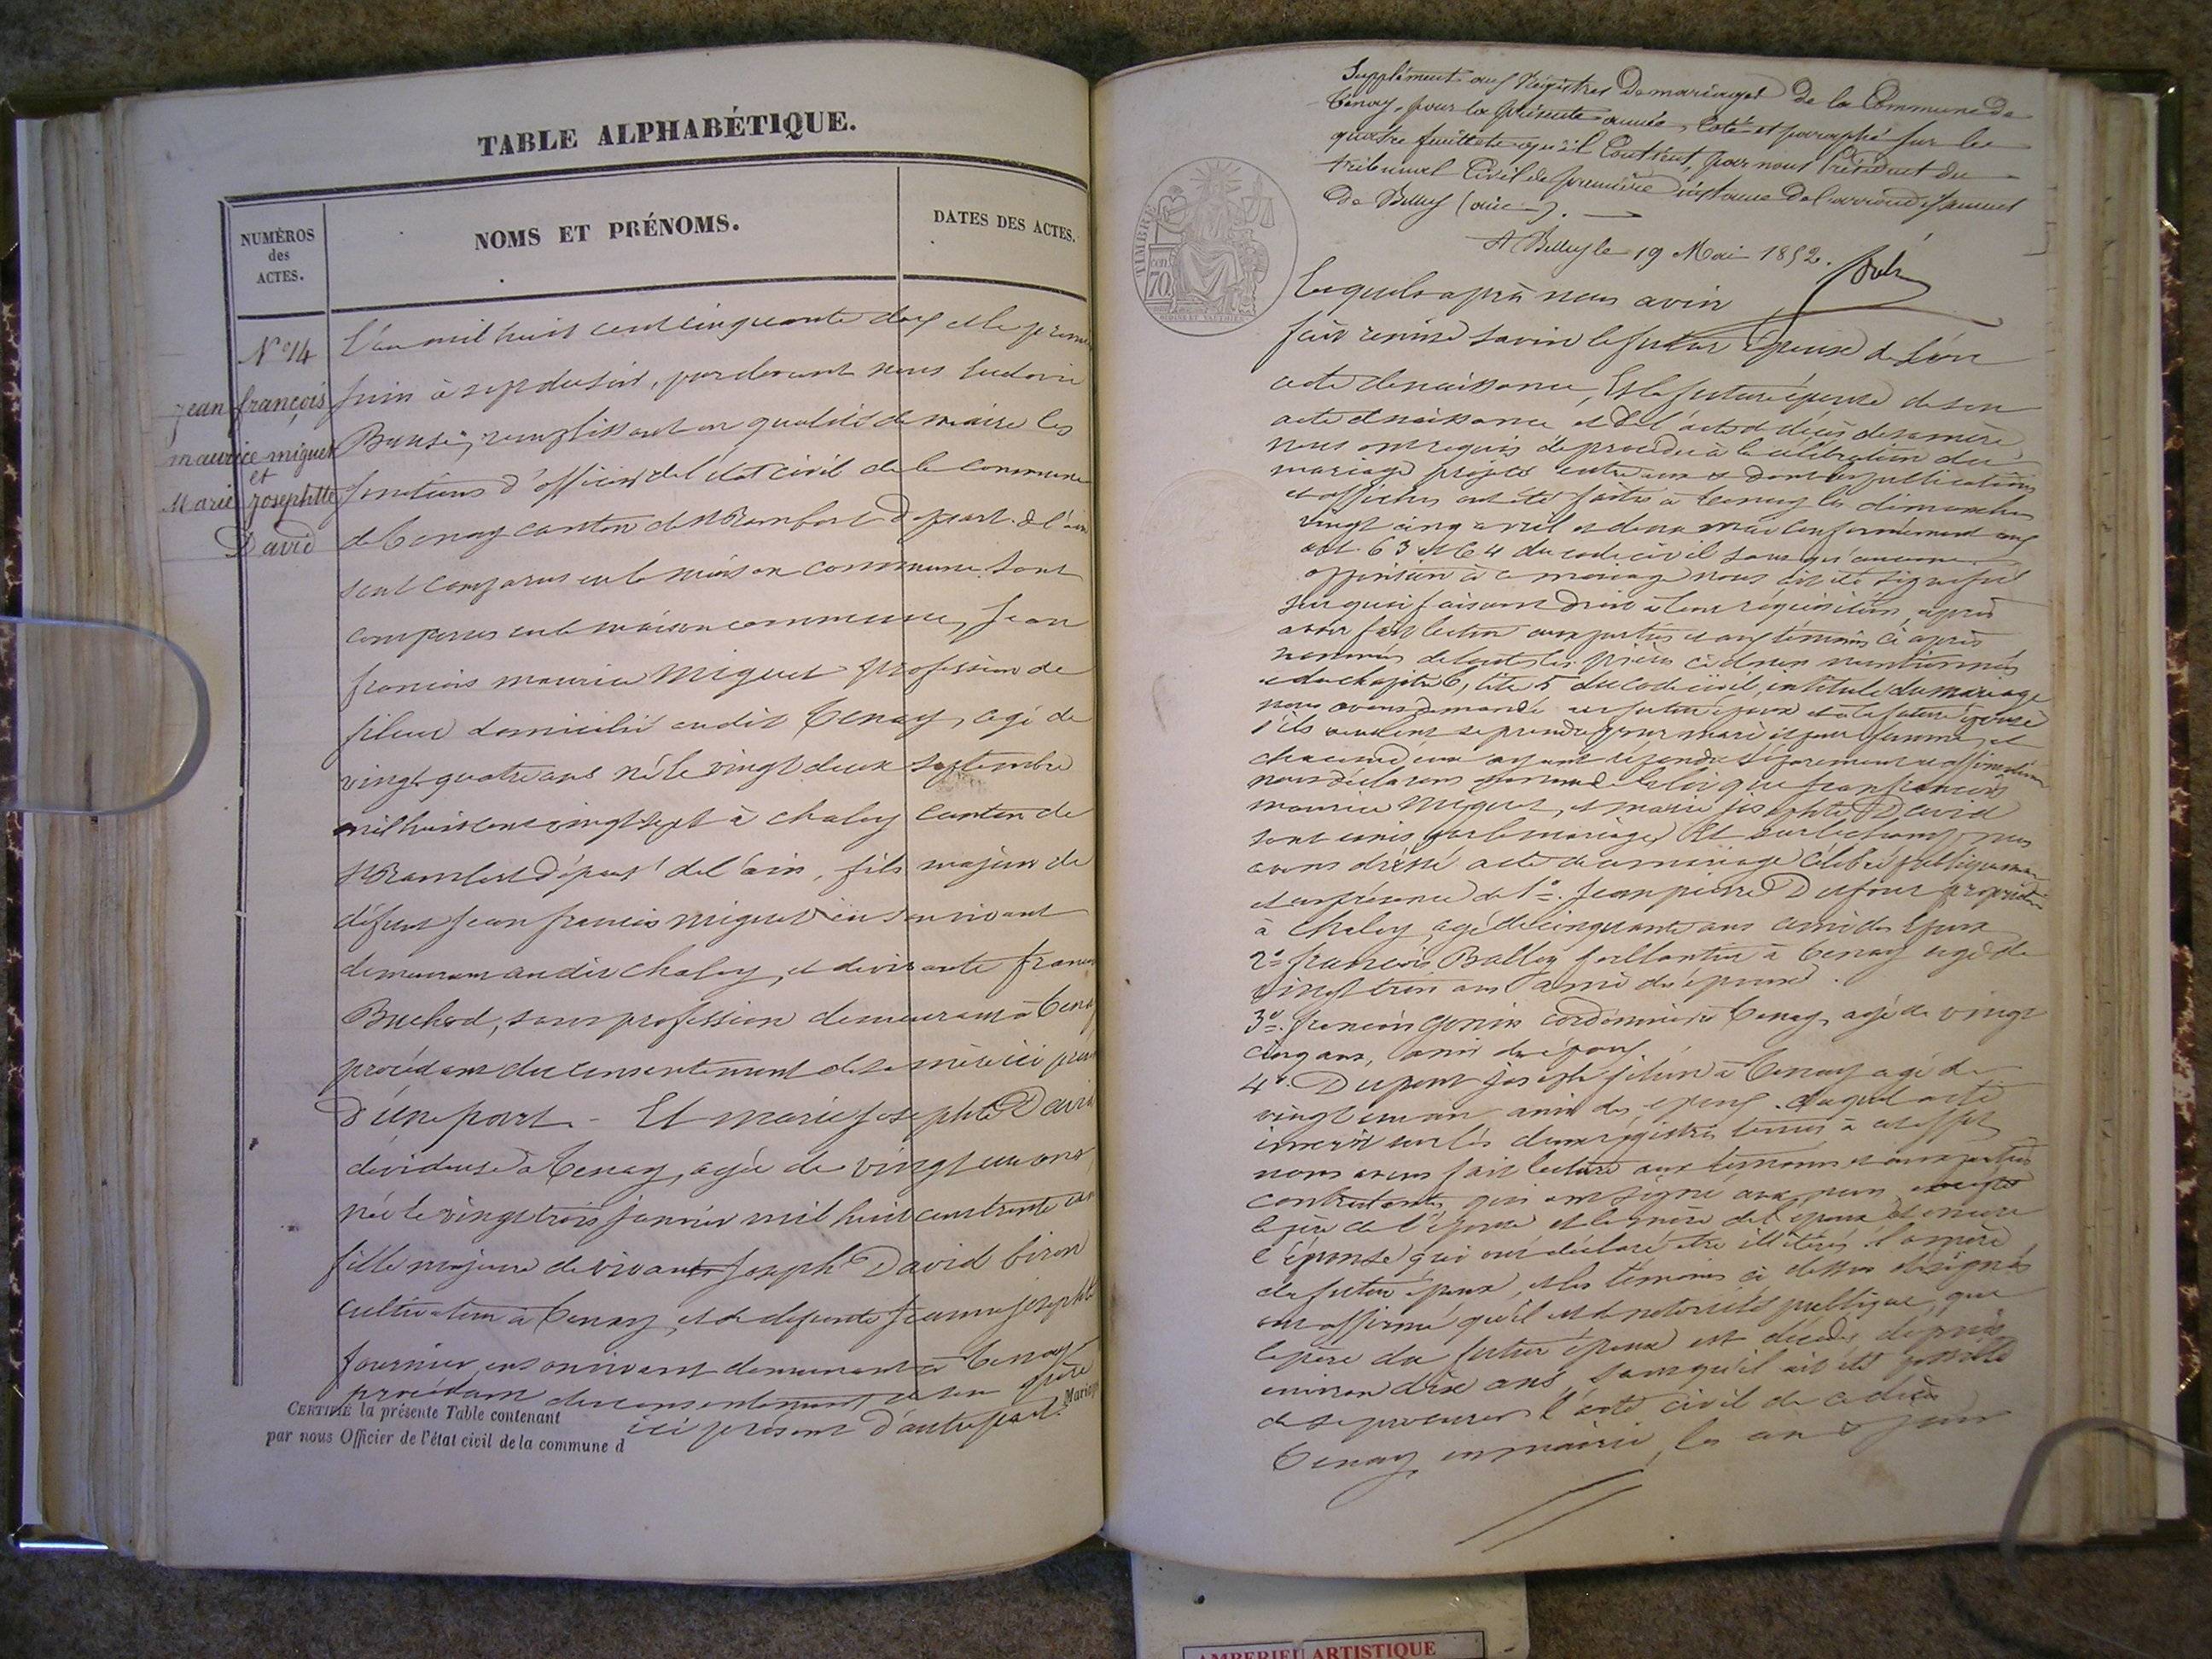 TABLE ALPHABÉTIQUE.
NUMÉROS
des
ACTES.
NOMS ET PRÉNOMS.
DATES DES ACTES.
N° 14
jean françois
maurice miguet
et
Marie josephtte
David
L'an mil huit cent cinquante deux et le premier
juin à sept du soir, par devant nous
remplissant en qualité de maire les
fonctions d'officier de l'état civil de la commune
de Tenay canton de St Rambert départ. de l'ain
sont comparus en la maison commune sont
comparus en la maison commune, Jean
francois maurice Miguet profession de
fileur domicilié audit Tenay, agé de
vingt quatre ans né le vingt deux septembre
mil huit cent vingt sept à chaley canton de
St Rambert départ de l'ain, fils majeur de
défunt Jean francois miguet en son vivant
demeurant audit chaley, et de vivante
Buchod, sans profession demeurant à Tenay
procédant du consentement de sa mère ici
D'une part - Et marie josephte David
dévideuse à Tenay, agée de vingt un ans,
née le vingt trois janvier mil huit cent trente un
fille majeure de vivant Joseph David
cultivateur à Tenay, et de défunte jeanne josephte
fournier, en son vivant demeurant à Tenay
procédant du consentement de son père
ici présent d'autre part.
CERTIFIÉ la présente Table contenant
Mariages
par nous Officier de l'état civil de la commune d
Supplément aux Régistres De mariages de la Commune De
Tenay, pour la présente année, coté et paraphé sur les
quatre feuillets qu'il Contient, par nous Président du
tribunal Civil de première instance De l'arrondissement
De Belley (ain).
A Belley le 19 Mai 1852.
TIMBRE
70
Lesquels après nous avoir
fait remise savoir le futur épouse de son
acte de naissance, Et la future épouse de son
acte de naissance et de l'acte de décès de sa mère
nous ont requis de procéder à la célébration du
mariage projeté entre eux et dont les publications
et affiches ont été faites à Tenay les dimanches
vingt cinq avril et deux mai conformément aux
art. 63 et 64 du code civil sans qu'aucune
opposition à ce mariage nous ait été signifié
sur quoi faisant droit à leur réquisition, après
avoir fait lecture aux parties et aux témoins ci après
nommés de toutes les pièces ci dessus mentionnées
et du chapitre 6, titre 5 du code civil, intitulé du mariage
nous avons demandé au futur époux et à la future épouse
s'ils veulent se prendre pour mari et pour femme, et
chacun d'eux ayant répondu séparement et affirmativement
nous déclarons au nom de la loi que jean francois
maurice Miguet, et marie josephte David
sont unis par le mariage, Et sur le champ nous
avons dressé acte de ce mariage célébré publiquement
et en présence de 1°. Jean pierre Dufour propriétaire
à Chaley agé de cinquante ans ami des époux
2° francois Balley ferblantier à Tenay agé de
vingt trois ans ami de époux.
3° francois Gonin cordonnier à Tenay, agé de vingt
cinq ans, ami des époux
4° Dupont joseph fileur à Tenay agé de
vingt un an ami des époux. duquel acte
inscrit sur les deux régistres tenus à cet effet
nous avons fait lecture aux témoins et aux parties
contractantes qui ont signé avec nous
le père de l'épouse et la mère de l'époux et encore
l'épouse qui ont déclaré etre illitérés. La mère
du futur époux, et les témoins ci dessus désignés
ont affirmé qu'il est de notoriété publique, que
le père du futur époux est décédé depuis
environ dix ans, sans qu'il ait été possible
de se procurer l'acte civil de ce décès
Tenay en mairie, les an et jour
AMBERIEU ARTISTIQUE